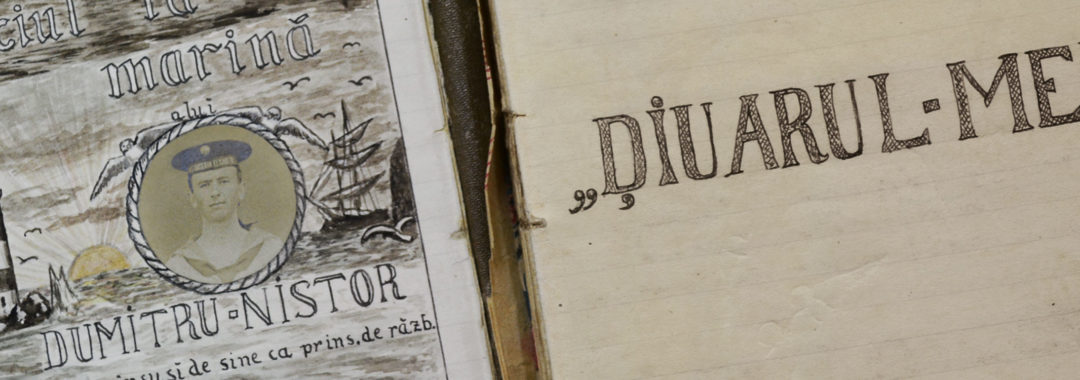 la
marină
alui
DUMITRU-NISTOR
și de sine ca prins.de răzb.
„ḐIUARUL-ME